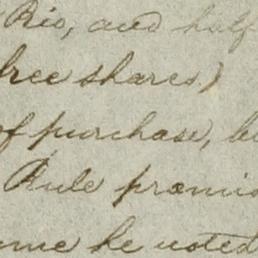 Rio, and half
free shares)
of purchase, bu
Rule promis
he voted